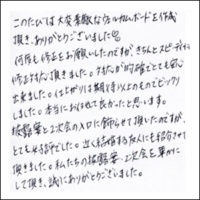 このたびは大変素敵なウェルカムボードを作成
頂き、ありがとうございました
何度も修正をお願いしたのですが、きちんとスピーディーに
修正を頂き、とても
出来ました。仕上がりは期待以上のものでビックリ
しました。本当にお願いして良かったと思います。
披露宴と2次会の入口に飾らせて頂いたのですが、
とても好評でした。近く結婚する友人にも紹介させて
頂きました。私たちの披露宴、2次会を華やかに
して頂き、誠にありがとうございました。